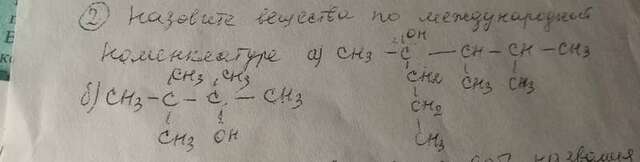 ② Назовите вещества по международной
номенклатуре а) CH3 - C - CH - CH - CH3
OH
CH2 CH3 CH3
CH2
CH3
б) CH3 - C - C - CH3
CH3 CH3
CH3 OH